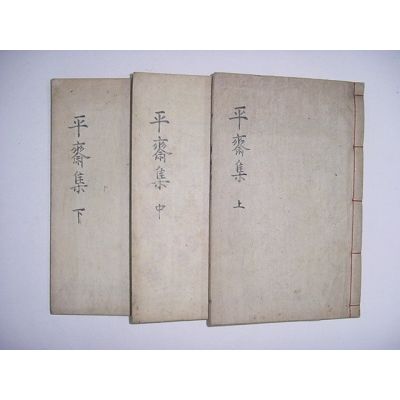 平齋集 上
平齋集 中
平齋集 下